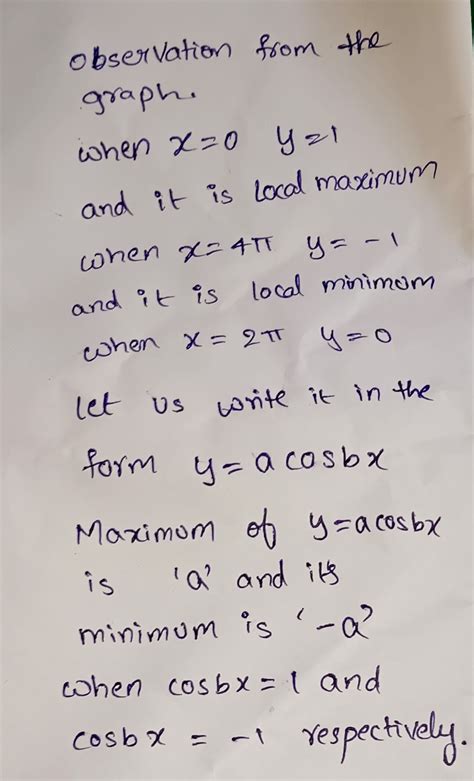 observation from the
graph.
when x=0 y=1
and it is local maximum
when x=4π y=-1
and it is local minimum
when x=2π y=0
let us write it in the
form y=a cosbx
Maximum of y=acosbx
is 'a' and its
minimum is '-a'
when cosbx=1 and
cosbx = -1 respectively.